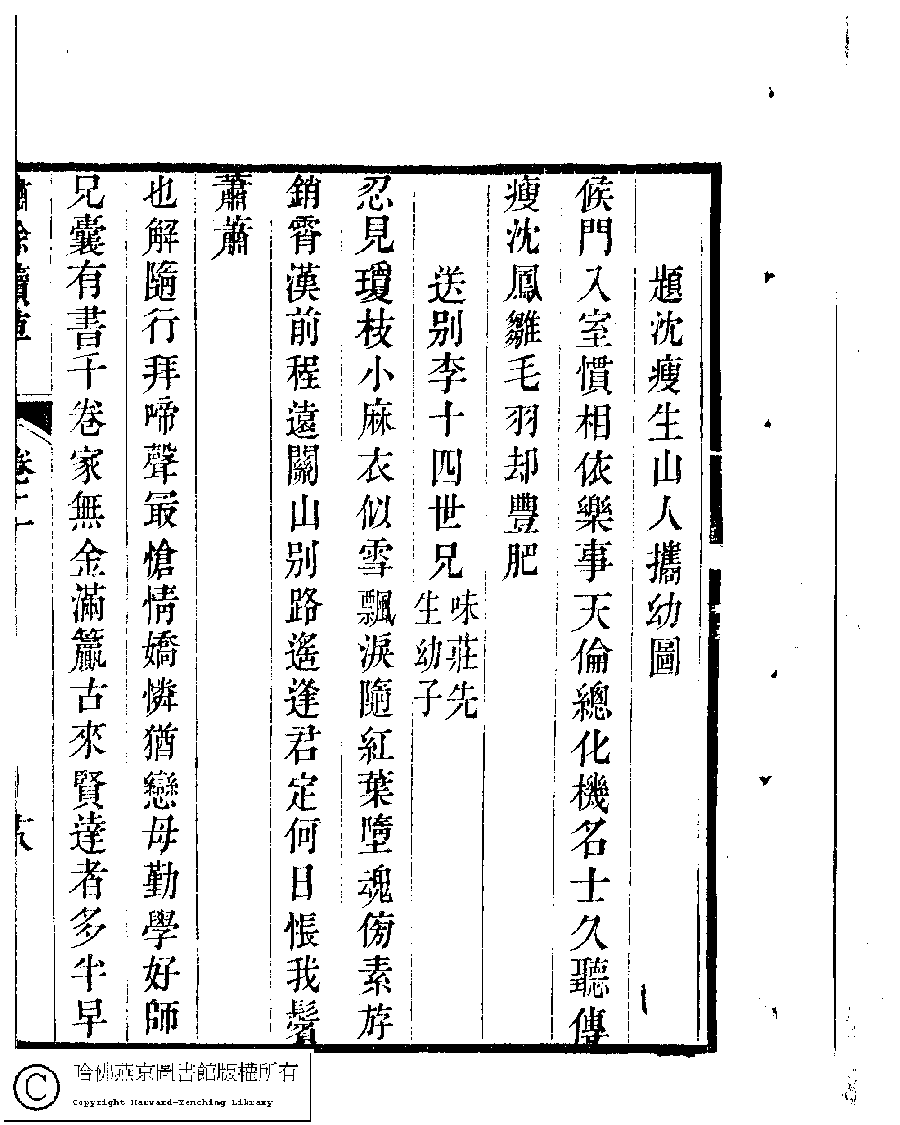 題沈瘦生山人攜幼圖
候門入室慣相依樂事天倫總化機名士久聽傳
瘦沈鳳雛毛羽却豐肥
送別李十四世兄味莊先生幼子
忍見瓊枝小麻衣似雪飄淚隨紅葉墮魂傍素旂
銷霄漢前程遠關山別路遙逢君定何日悵我鬢
蕭蕭
也解隨行拜啼聲最愴情嬌憐猶戀母勤學好師
兄囊有書千卷家無金滿籯古來賢達者多半早
卷十
哈佛燕京圖書館版權所有
Copyright Harvard-Yenching Library